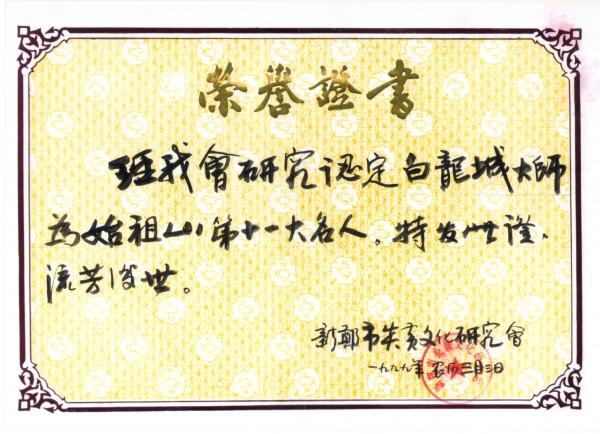 榮譽證書
經我會研究認定白龍城大師
為始祖山第廿一大名人。特发此證,
流芳後世。
新鄭市炎黄文化研究會
一九九九年农历三月三日